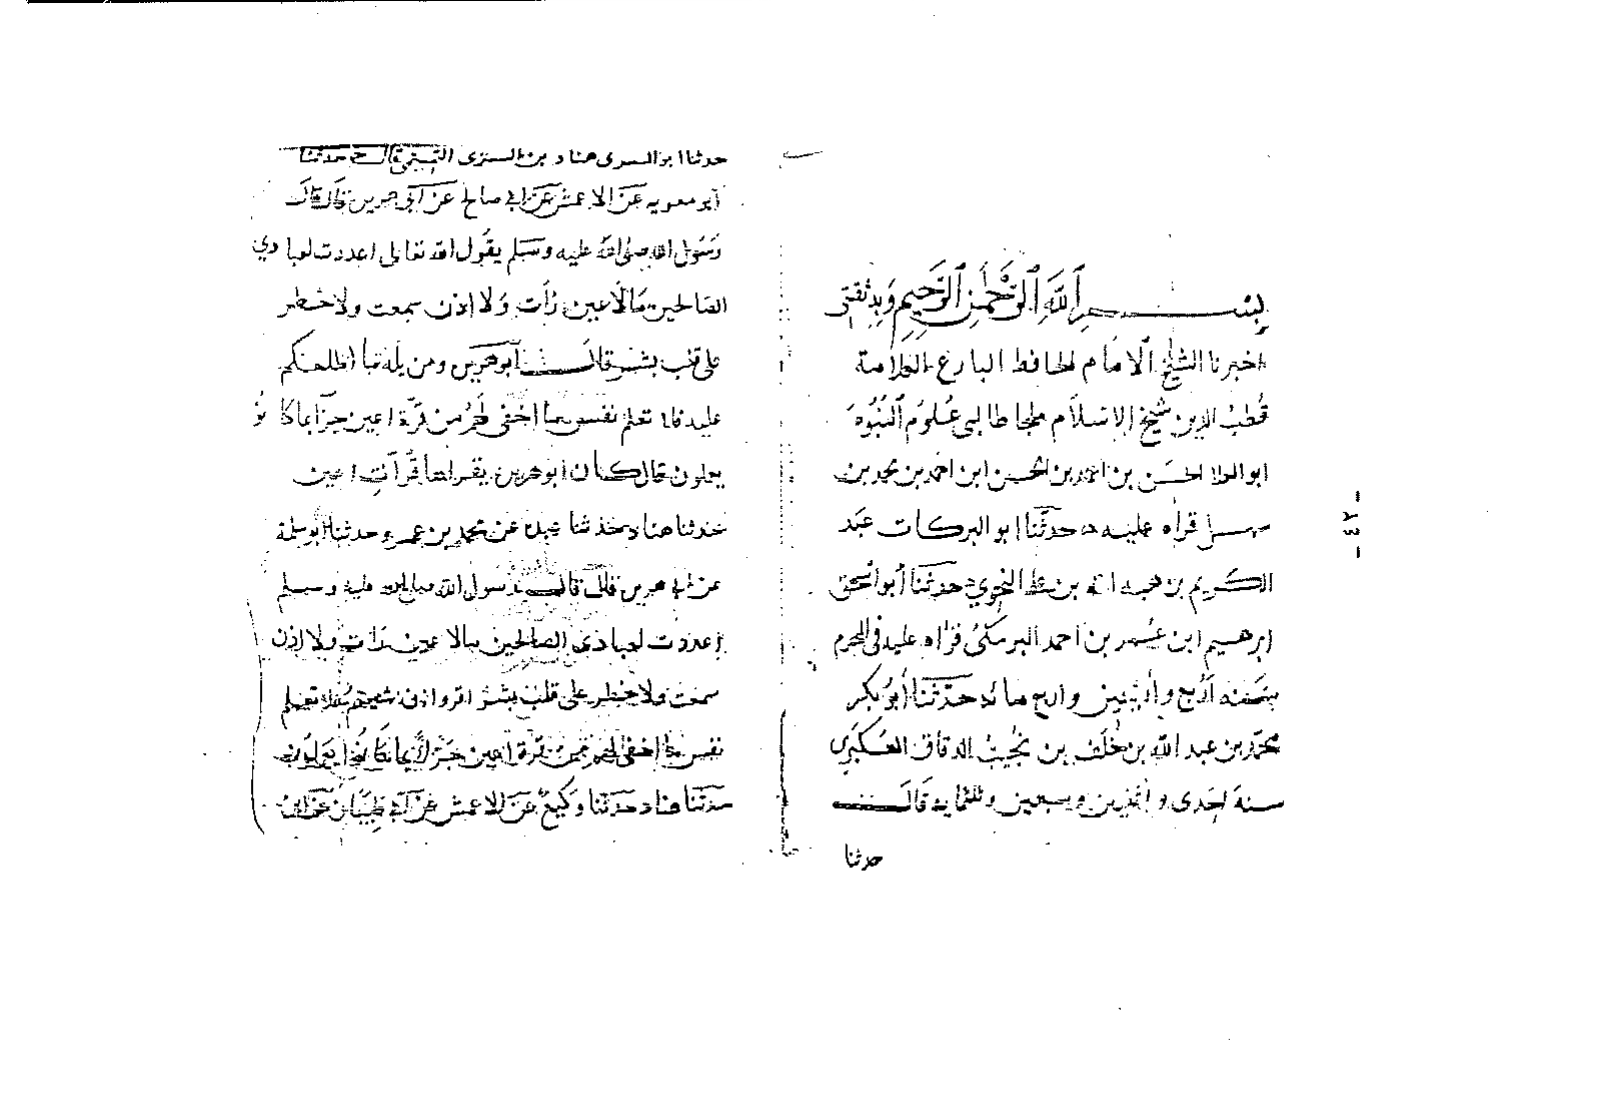 بسم الله الرحمن الرحيم وبه ثقتي
اخبرنا الشيخ الامام الحافظ البارع العلامة
قطب الدين شيخ الاسلام ملجا طالبي علوم النبوة
ابو العلا الحسن بن احمد بن الحسن ابن احمد بن محمد بن
سهل قراه عليه حدثنا ابو البركات عبد
الكريم بن هبه الله بن النحوي حدثنا أبو اسحق
ابرهيم ابن عمر بن احمد البرمكي قراه عليه في المحرم
سنه اربع وأربعين واربع مائه حدثنا أبو بكر
محمد بن عبد الله بن خلف بن نجيب الدقاق العكبري
سنة احدى و وسبعين وثلثمايه قال
حدثنا
-٤٢-
حدثنا ابو السرى هناد بن السرى التميمي قال حدثنا
أبو معويه عن الاعمش عن ابي صالح عن ابي هريرة قال قال
رسول الله صلى الله عليه وسلم يقول الله تعالى اعددت لعبادي
الصالحين مالا عين رأت ولا اذن سمعت ولا خطر
على قلب بشر قال أبو هريرة ومن بله ما اطلعكم
عليه فلا تعلم نفس ما اخفى لهم من قرة اعين جزآ بما كانو
يعلون قال كان ابو هريرة يقراها قرآت اعين
حدثنا هناد حدثنا عبدة عن محمد بن عمرو حدثنا أبو سلمة
عن ابي هريرة قال قال رسول الله صلى الله عليه وسلم
اعددت لعبادى الصالحين مالا عين رات ولا اذن
سمعت ولا خطر على قلب بشر اقروا ان شيتم فلا تعلم
نفس ما اخفى لهم من قرة اعين جزآ بما كانوا يعملون
حدثنا هناد حدثنا وكيع عن الاعمش عن ابي ظبيان عن ابن